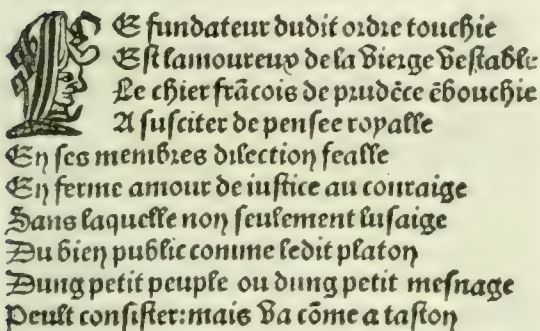 LE fundateur dudit ordre touchie
Est lamoureux de la vierge vestable
Le chier frãcois de prudẽce ẽbouchie
A susciter de pensee royalle
En ses membres dilection fealle
En ferme amour de iustice au couraige
Sans laquelle non seulement lusaige
Du bien public comme ledit platon
Dung petit peuple ou dung petit mesnage
Peult consister: mais va cõme a taston